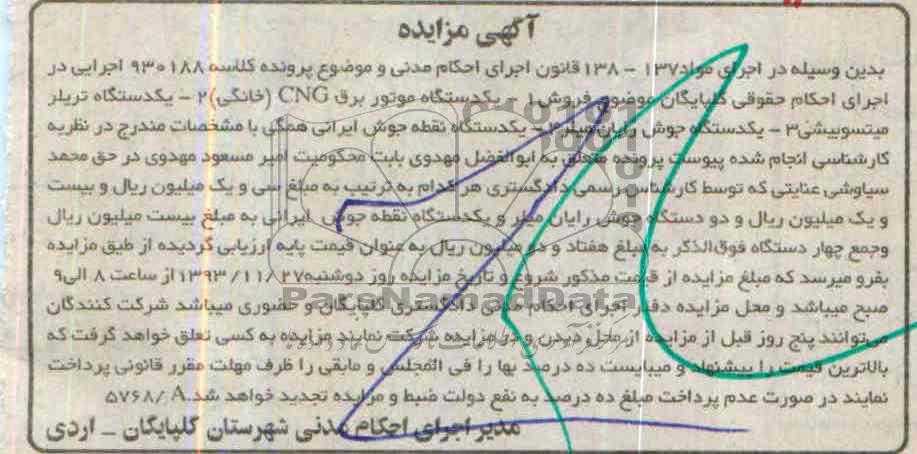 آگهی مزایده
بدین وسیله در اجرای مواد ۱۳۷ – ۱۳۸ قانون اجرای احکام مدنی و موضوع پرونده کلاسه ۹۳۰۱۸۸ اجرایی در
اجرای احکام حقوقی گلپایگان موضوع فروش ۱ – یکدستگاه موتور برق CNG (خانگی) ۲ – یکدستگاه تریلر
میتسوبیشی ۳ – یکدستگاه جوش رایان میلر ۴ – یکدستگاه نقطه جوش ایرانی همگی با مشخصات مندرج در نظریه
کارشناسی انجام شده پیوست پرونده متعلق به ابوالفضل مهدوی بابت محکومیت امیر مسعود مهدوی در حق محمد
سیاوشی عنایتی که توسط کارشناس رسمی دادگستری هر کدام به ترتیب به مبلغ سی و یک میلیون ریال و بیست
و یک میلیون ریال و دو دستگاه جوش رایان میلر و یکدستگاه نقطه جوش ایرانی به مبلغ بیست میلیون ریال
وجمع چهار دستگاه فوق‌الذکر به مبلغ هفتاد و دو میلیون ریال به عنوان قیمت پایه ارزیابی گردیده از طیق مزایده
بفرو میرسد که مبلغ مزایده از قیمت مذکور شروع و تاریخ مزایده روز دوشنبه ۱۳۹۳/۱۱/۲۷ از ساعت ۸ الی ۹
صبح میباشد و محل مزایده دفتر اجرای احکام مدنی دادگستری گلپایگان و حضوری میباشد شرکت کنندگان
می‌توانند پنج روز قبل از مزایده از محل دیدن و در مزایده شرکت نمایند مزایده به کسی تعلق خواهد گرفت که
بالاترین قیمت را پیشنهاد و میبایست ده درصد بها را فی المجلس و مابقی را ظرف مهلت مقرر قانونی پرداخت
نمایند در صورت عدم پرداخت مبلغ ده درصد به نفع دولت ضبط و مزایده تجدید خواهد شد. ۵۷۶۸/A
مدیر اجرای احکام مدنی شهرستان گلپایگان – اردی
ParsNamadData